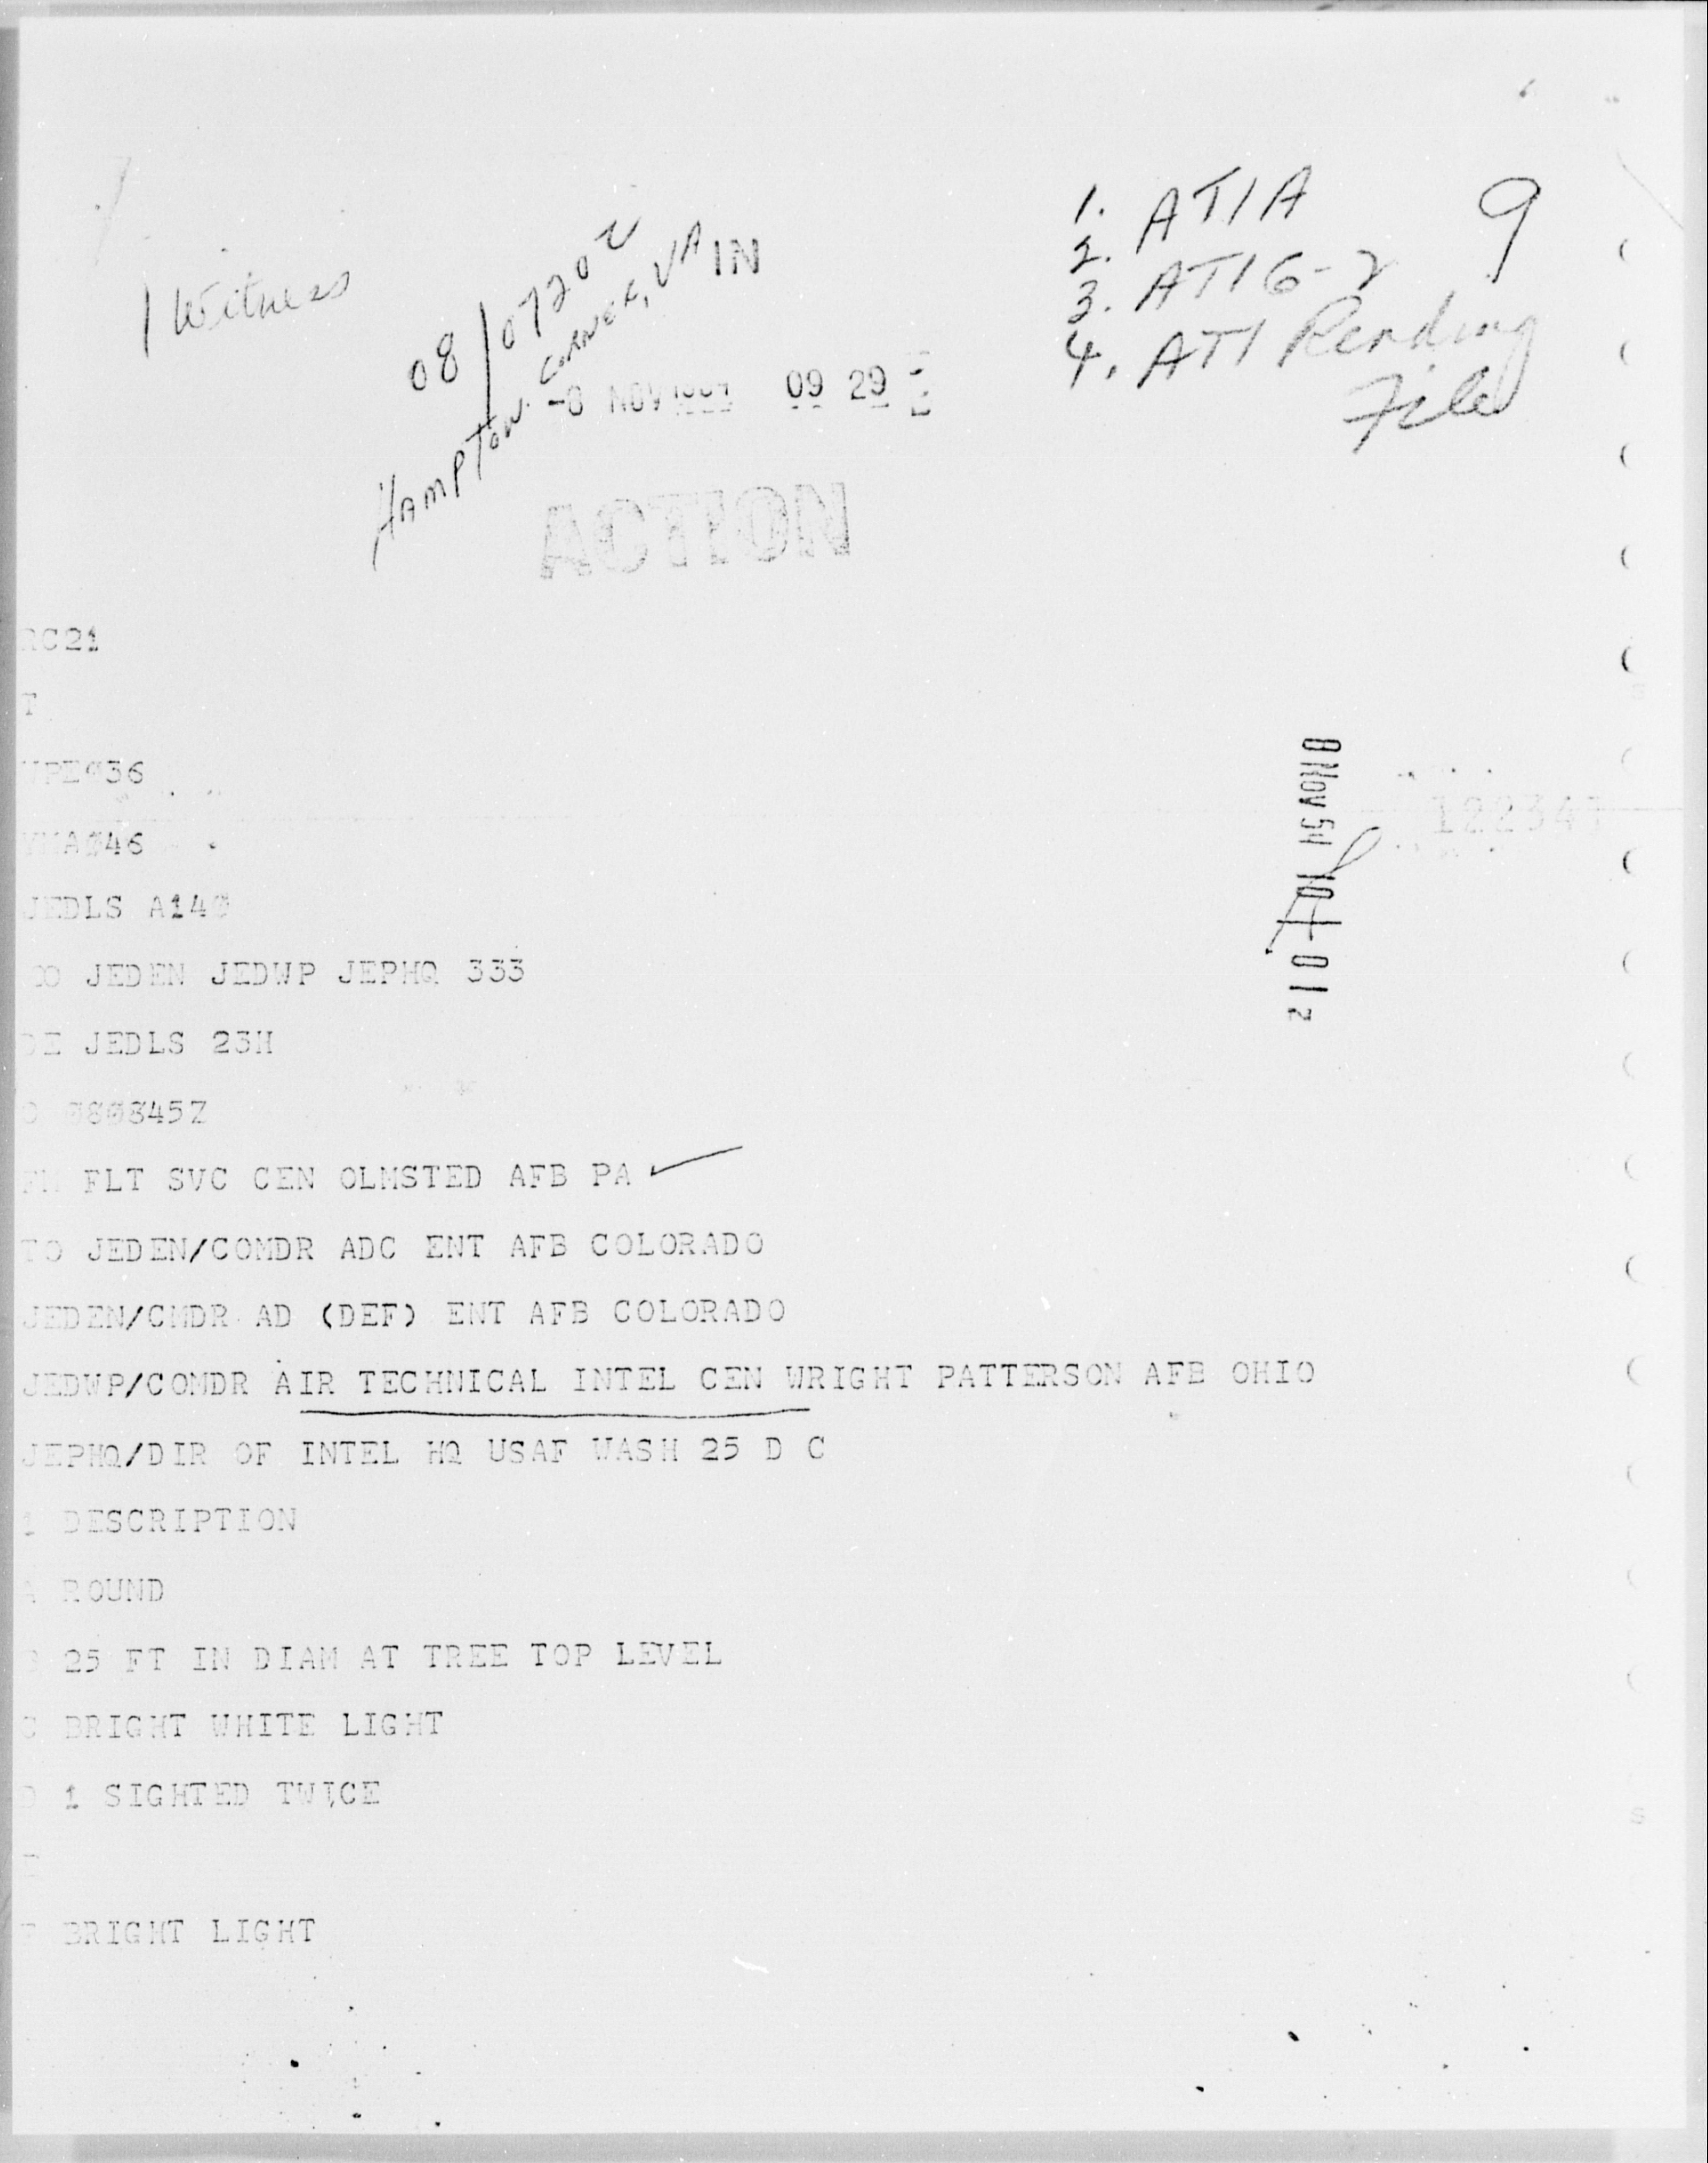 1 Witness
08/0720Z
HAMPTON CORNER, VA
IN
NOV 09 29
ACTION
1. ATIA
2.
3. ATIG-2
4. ATI Reading
File
9
RC21
T
036
046
JEDLS A140
JEDEN JEDWP JEPHQ 333
DE JEDLS 23H
O 080845Z
FM FLT SVC CEN OLMSTED AFB PA
TO JEDEN/COMDR ADC ENT AFB COLORADO
JEDEN/CMDR AD (DEF) ENT AFB COLORADO
JEDWP/COMDR AIR TECHNICAL INTEL CEN WRIGHT PATTERSON AFB OHIO
JEPHQ/DIR OF INTEL HQ USAF WASH 25 D C
1 DESCRIPTION
A ROUND
B 25 FT IN DIAM AT TREE TOP LEVEL
C BRIGHT WHITE LIGHT
D 1 SIGHTED TWICE
E
F BRIGHT LIGHT
8 NOV 54 10 01z